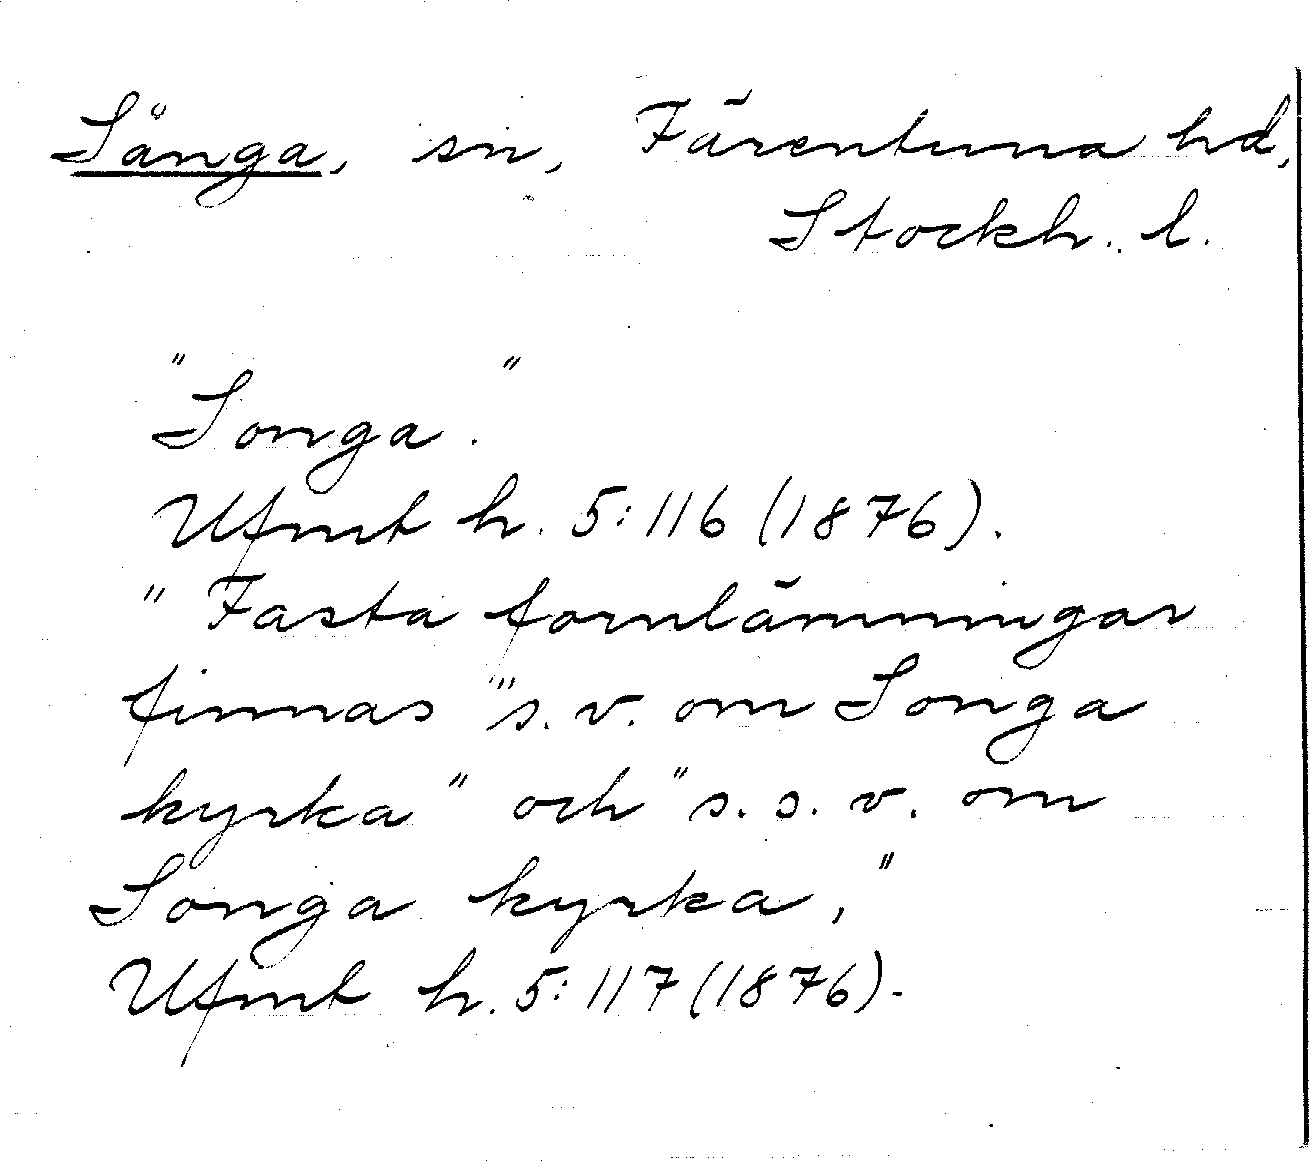 Sånga, sn, Färentuna hd,
Stockh. l.
"Songa."
Ufmt h. 5:116 (1876).
"Fasta fornlämningar
finnas "s. v. om Songa
kyrka" och "s. s. v. om
Songa kyrka,"
Ufmt h. 5:117 (1876).